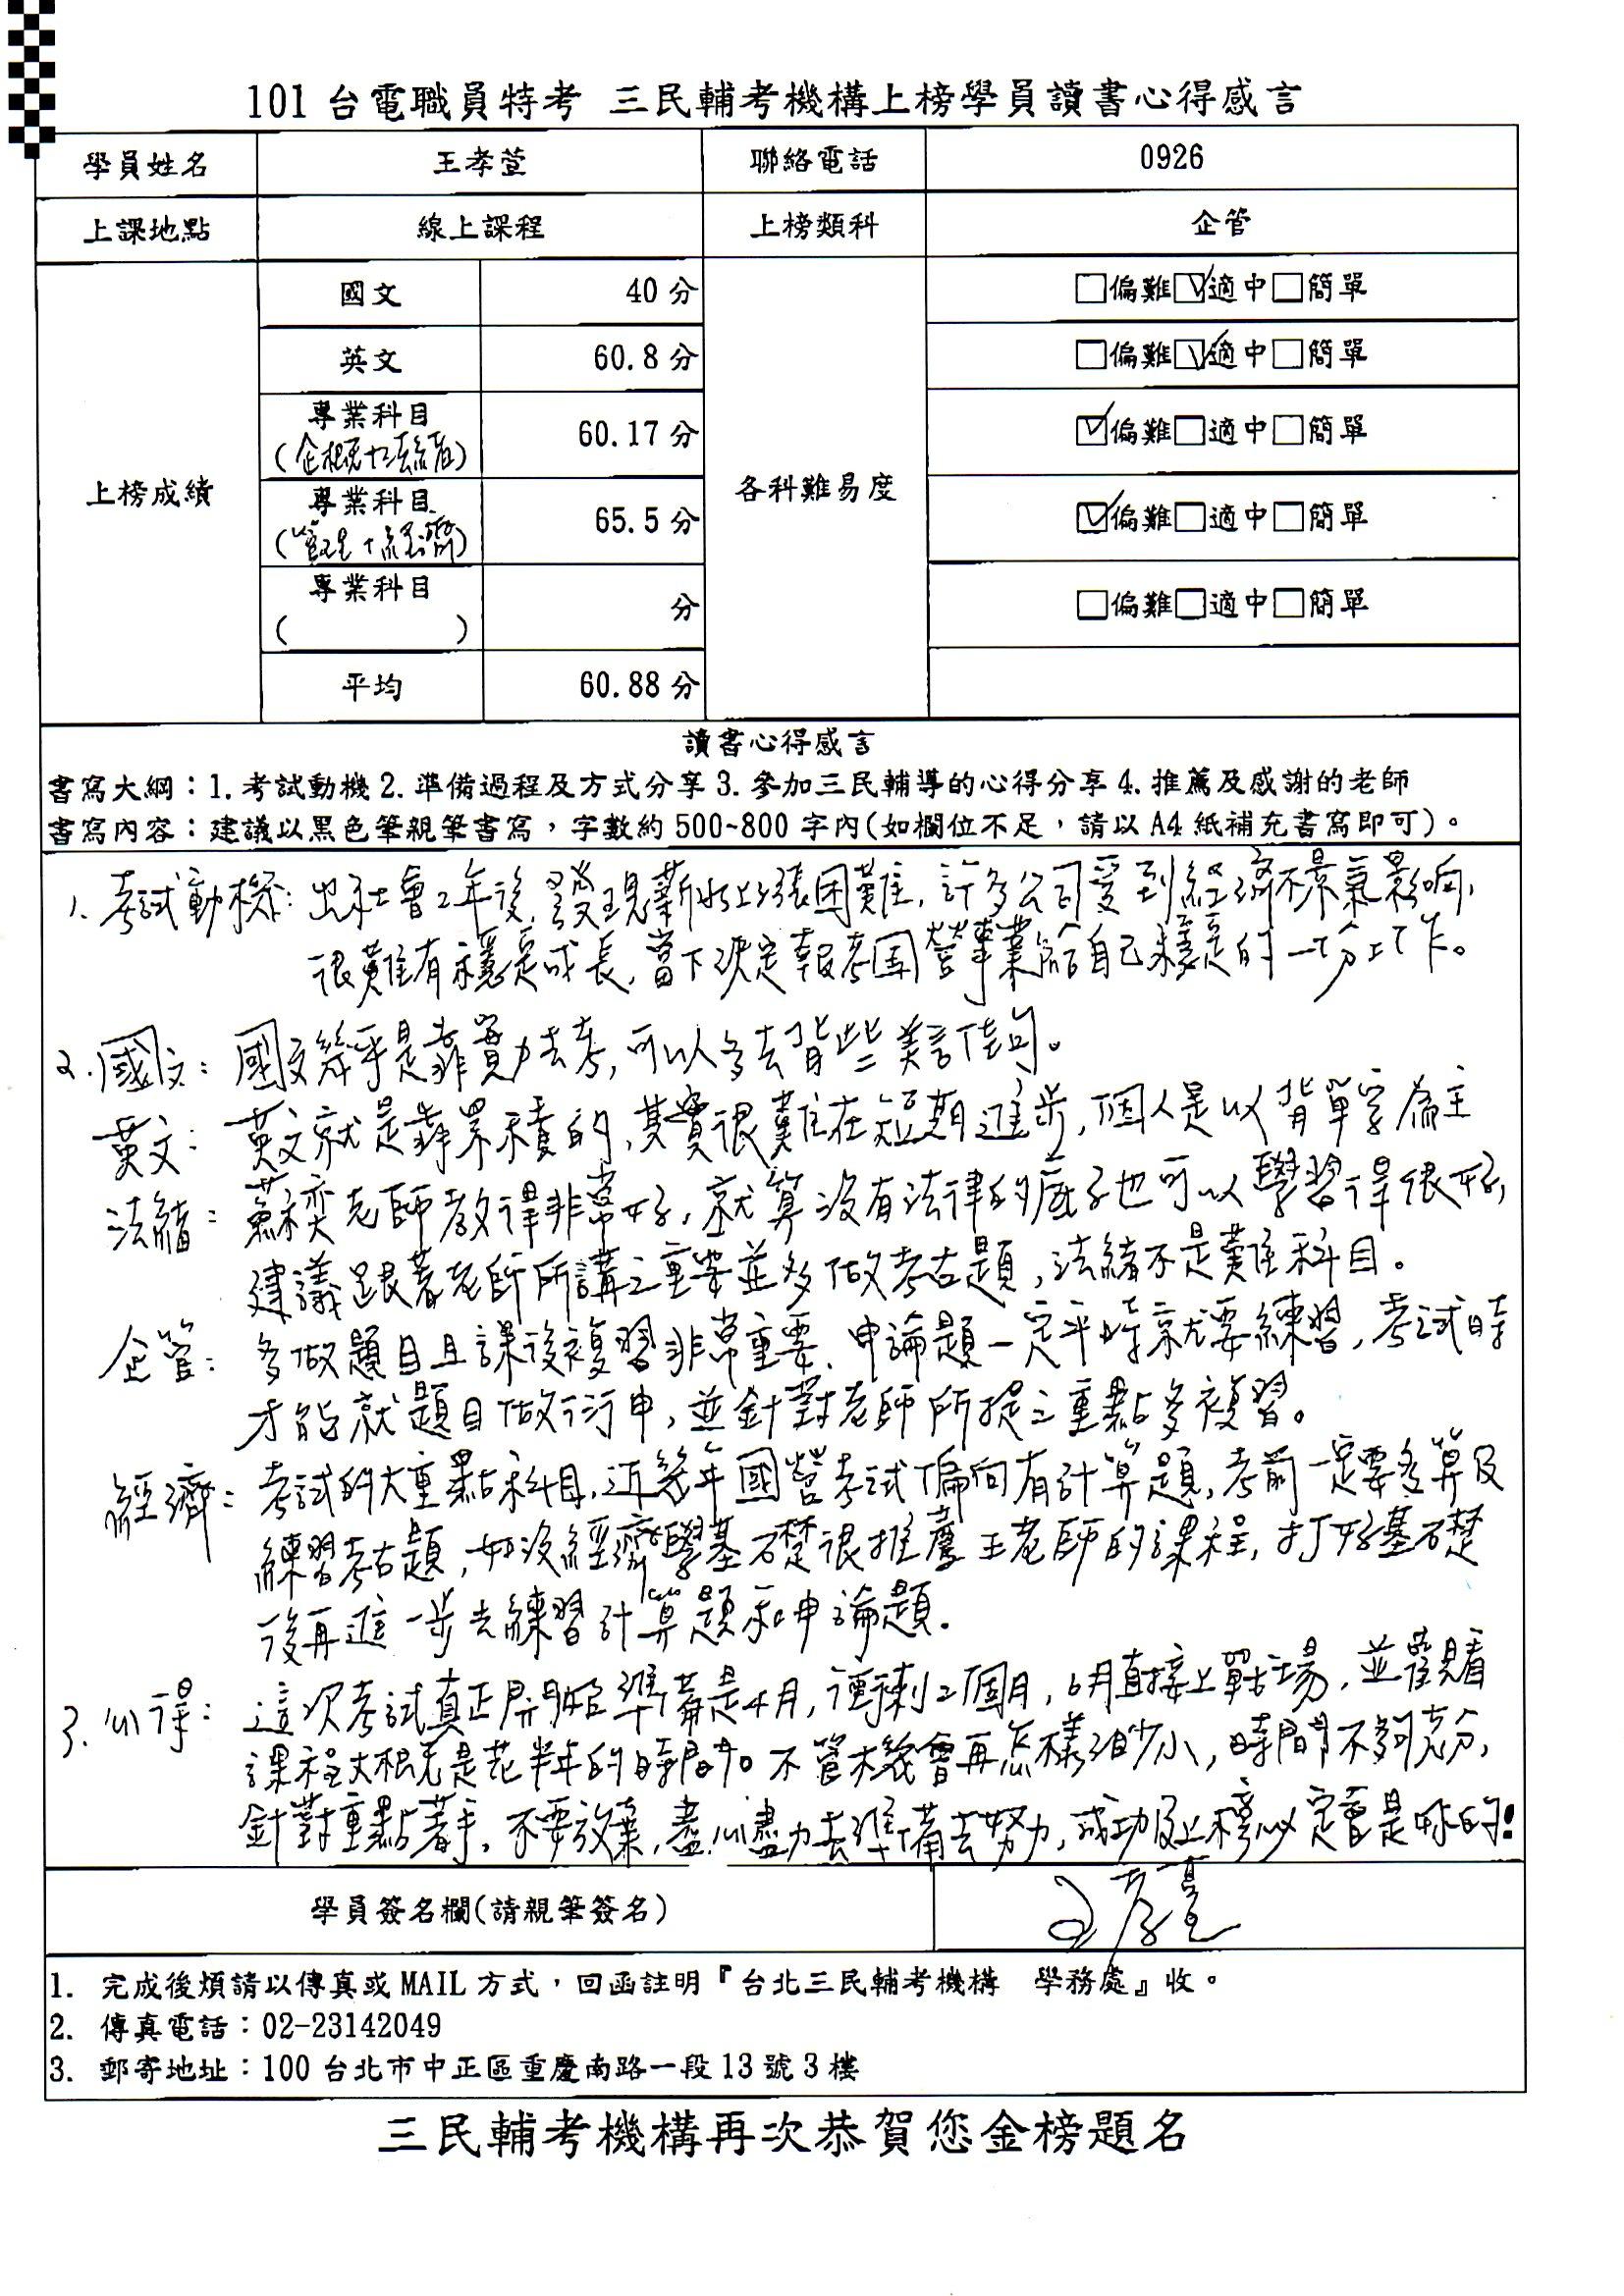 101 台電職員特考 三民輔考機構上榜學員讀書心得感言
學員姓名 王孝萱 聯絡電話 0926
上課地點 線上課程 上榜類科 企管
上榜成績 國文 40 分 各科難易度 □偏難☑適中□簡單
英文 60.8 分 □偏難☑適中□簡單
專業科目 (企概+法緒) 60.17 分 ☑偏難□適中□簡單
專業科目 (管理+經濟) 65.5 分 ☑偏難□適中□簡單
專業科目 ( ) 分 □偏難□適中□簡單
平均 60.88 分
讀書心得感言
書寫大綱：1.考試動機 2.準備過程及方式分享 3.參加三民輔導的心得分享 4.推薦及感謝的老師
書寫內容：建議以黑色筆親筆書寫，字數約 500~800 字內(如欄位不足，請以 A4 紙補充書寫即可)。
1. 考試動機：出社會2年後，發現薪水上漲困難，許多公司受到經濟不景氣影响，
很難有穩定成長，當下決定報考國營事業給自己穩定的一份工作。
2. 國文：國文幾乎是靠實力去考，可以多去背些美言佳句。
英文：英文就是靠累積的，其實很難在短期進步，個人是以背單字為主
法緒：蘇奕老師教得非常好，就算沒有法律的底子也可以學習得很好，
建議跟著老師所講之重要並多做考古題，法緒不是難科目。
企管：多做題目且課後複習非常重要，申論題一定平時就要練習，考試時
才能就題目做衍申，並針對老師所提之重點多複習。
經濟：考試的大重點科目，近幾年國營考試偏向有計算題，考前一定要多算及
練習考古題，如沒經濟學基礎很推薦王老師的課程，打好基礎
後再進一步去練習計算題和申論題。
3. 心得：這次考試真正開始準備是4月，僅剩2個月，6月直接上戰場，並觀看
課程大概是花半年的時間。不管機會再怎樣渺小，時間不夠充分，
針對重點著手，不要放棄，盡心盡力去準備去努力，成功及上榜必定會是你的!
學員簽名欄(請親筆簽名) 王孝萱
1. 完成後煩請以傳真或 MAIL 方式，回函註明『台北三民輔考機構 學務處』收。
2. 傳真電話：02-23142049
3. 郵寄地址：100 台北市中正區重慶南路一段 13 號 3 樓
三民輔考機構再次恭賀您金榜題名